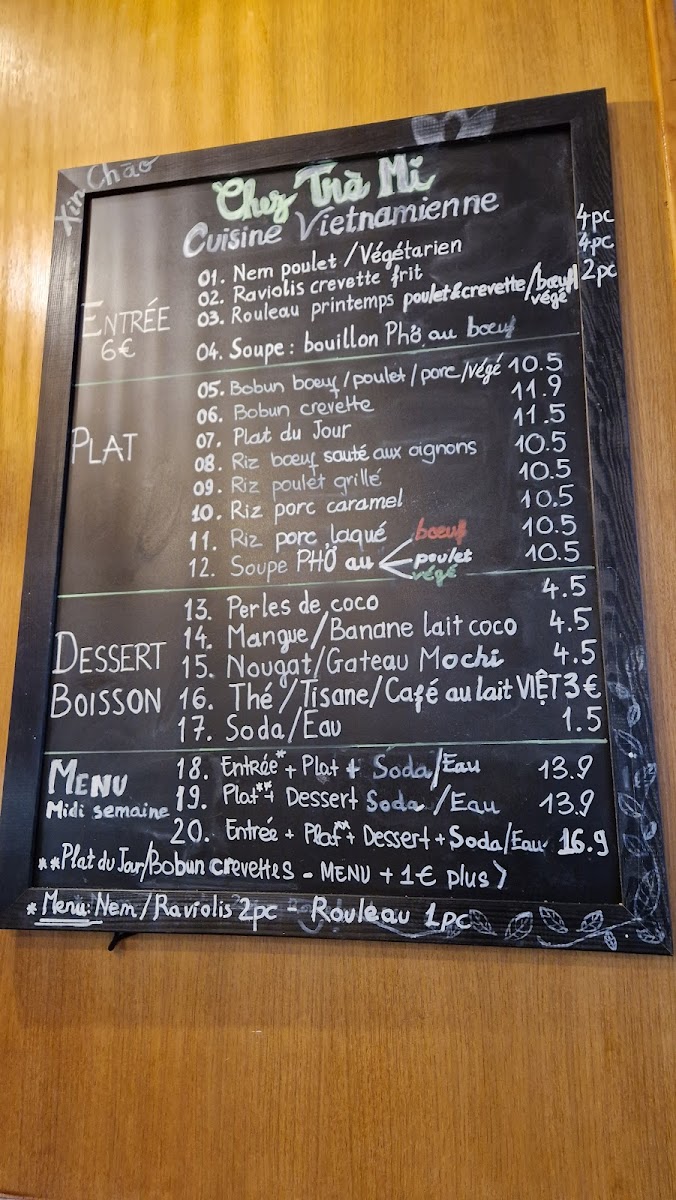 Xin Chào
Chez Trà Mi
Cuisine Vietnamienne
ENTRÉE
6€
01. Nem poulet / Végétarien 4pc
02. Raviolis crevette frit 4pc
03. Rouleau printemps poulet&crevette/bœuf/ 2pc
végé
04. Soupe : bouillon Phở au bœuf
PLAT
05. Bobun bœuf/poulet/porc/végé 10.5
06. Bobun crevette 11.9
07. Plat du Jour 11.5
08. Riz bœuf sauté aux oignons 10.5
09. Riz poulet grillé 10.5
10. Riz porc caramel 10.5
11. Riz porc laqué 10.5
12. Soupe PHỞ au 10.5
bœuf
poulet
végé
DESSERT
13. Perles de coco 4.5
14. Mangue/Banane lait coco 4.5
15. Nougat/Gateau Mochi 4.5
BOISSON
16. Thé/Tisane/Café au lait VIỆT 3€
17. Soda/Eau 1.5
MENU
Midi semaine
18. Entrée* + Plat + Soda/Eau 13.9
19. Plat**+ Dessert Soda/Eau 13.9
20. Entrée + Plat**+ Dessert + Soda/Eau 16.9
**Plat du Jour/Bobun crevettes - MENU + 1€ plus)
* Menu: Nem/Raviolis 2pc - Rouleau 1pc